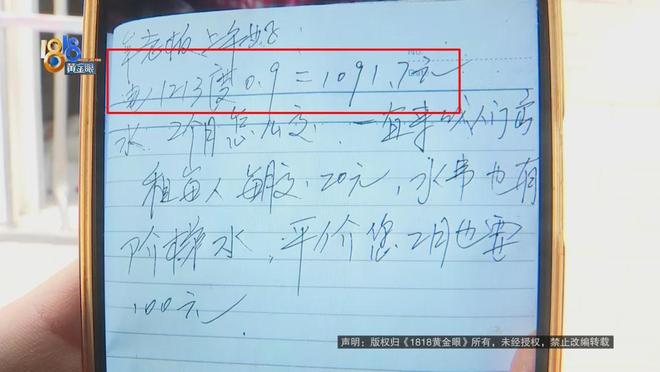 1818
黄金眼
老板上午好
电1213度0.9=1091.7元
水 2个月您么交. 一直来我们房
租每人每月交20元,水弗也有
阶梯水,平价您2月也要
100元.
声明:版权归《1818黄金眼》所有,未经授权,禁止改编转载